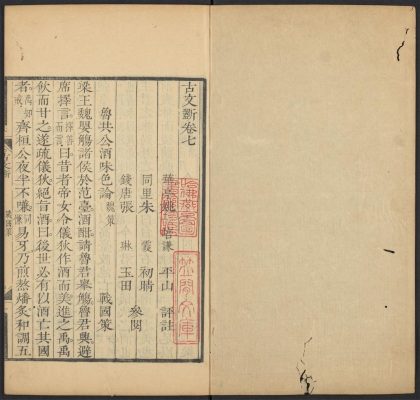 古文斲卷七
華亭姚培謙 平山 評註
同里朱 霞 初晴
錢唐張 琳 玉田 參閱
魯共公酒味色論 魏策 戰國策
梁王魏嬰觴諸侯於范臺酒酣請魯君舉觴魯君興避
席擇言擇善而言曰昔者帝女令儀狄作酒而美進之禹禹
飲而甘之遂疏儀狄絕旨酒曰後世必有以酒亡其國
者 齊桓公夜半不嗛易牙乃煎熬燔炙和調五
古文斲
戰國策
文庫